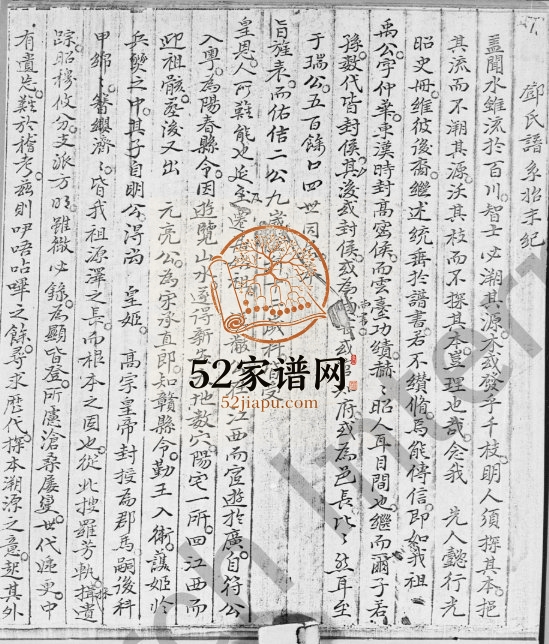 鄧氏譜系招末紀
蓋聞水維流於百川智士必溯其源木或發乎千枝明人須探其本挹
其流而不溯其源沃其枝而不探其本豈理也哉念我 先人懿行光
昭史冊維彼後裔繼述統垂於譜書若不纘脩焉能傳信即如我祖
禹公字仲華東漢時封高密侯而雲臺功績赫〻昭人耳目間也繼而爾子若
孫數代皆封侯其後或封侯或為 或 府或為邑長比〻然耳至
于瑞公五百餘口四世同
旨旌表而佑信二公九歲 十二歲
皇恩人所難能也延至 祖 江西而宦遊於廣自符公
入粵為陽春縣令因遊覽山水遂得新 地數穴陽宅一所回江西而
迎祖骸 後又出 元亮公為宋承直郎知贛縣令勤王入衛謀姬於
兵燹之中其子自明公得尚 皇姬 高宗皇帝封授為郡馬嗣後科
甲綿〻簪纓濟〻皆我祖源澤之長而根本之固也從此搜羅芳軌揖遺
踪昭穆攸分支派方明雖微必錄為顯皆登所慮滄桑屢變世代遞更中
有遺忘難於稽考茲則咿唔呫嗶之餘尋求歷代探本溯源之意起其外
52家谱网
52jiapu.com